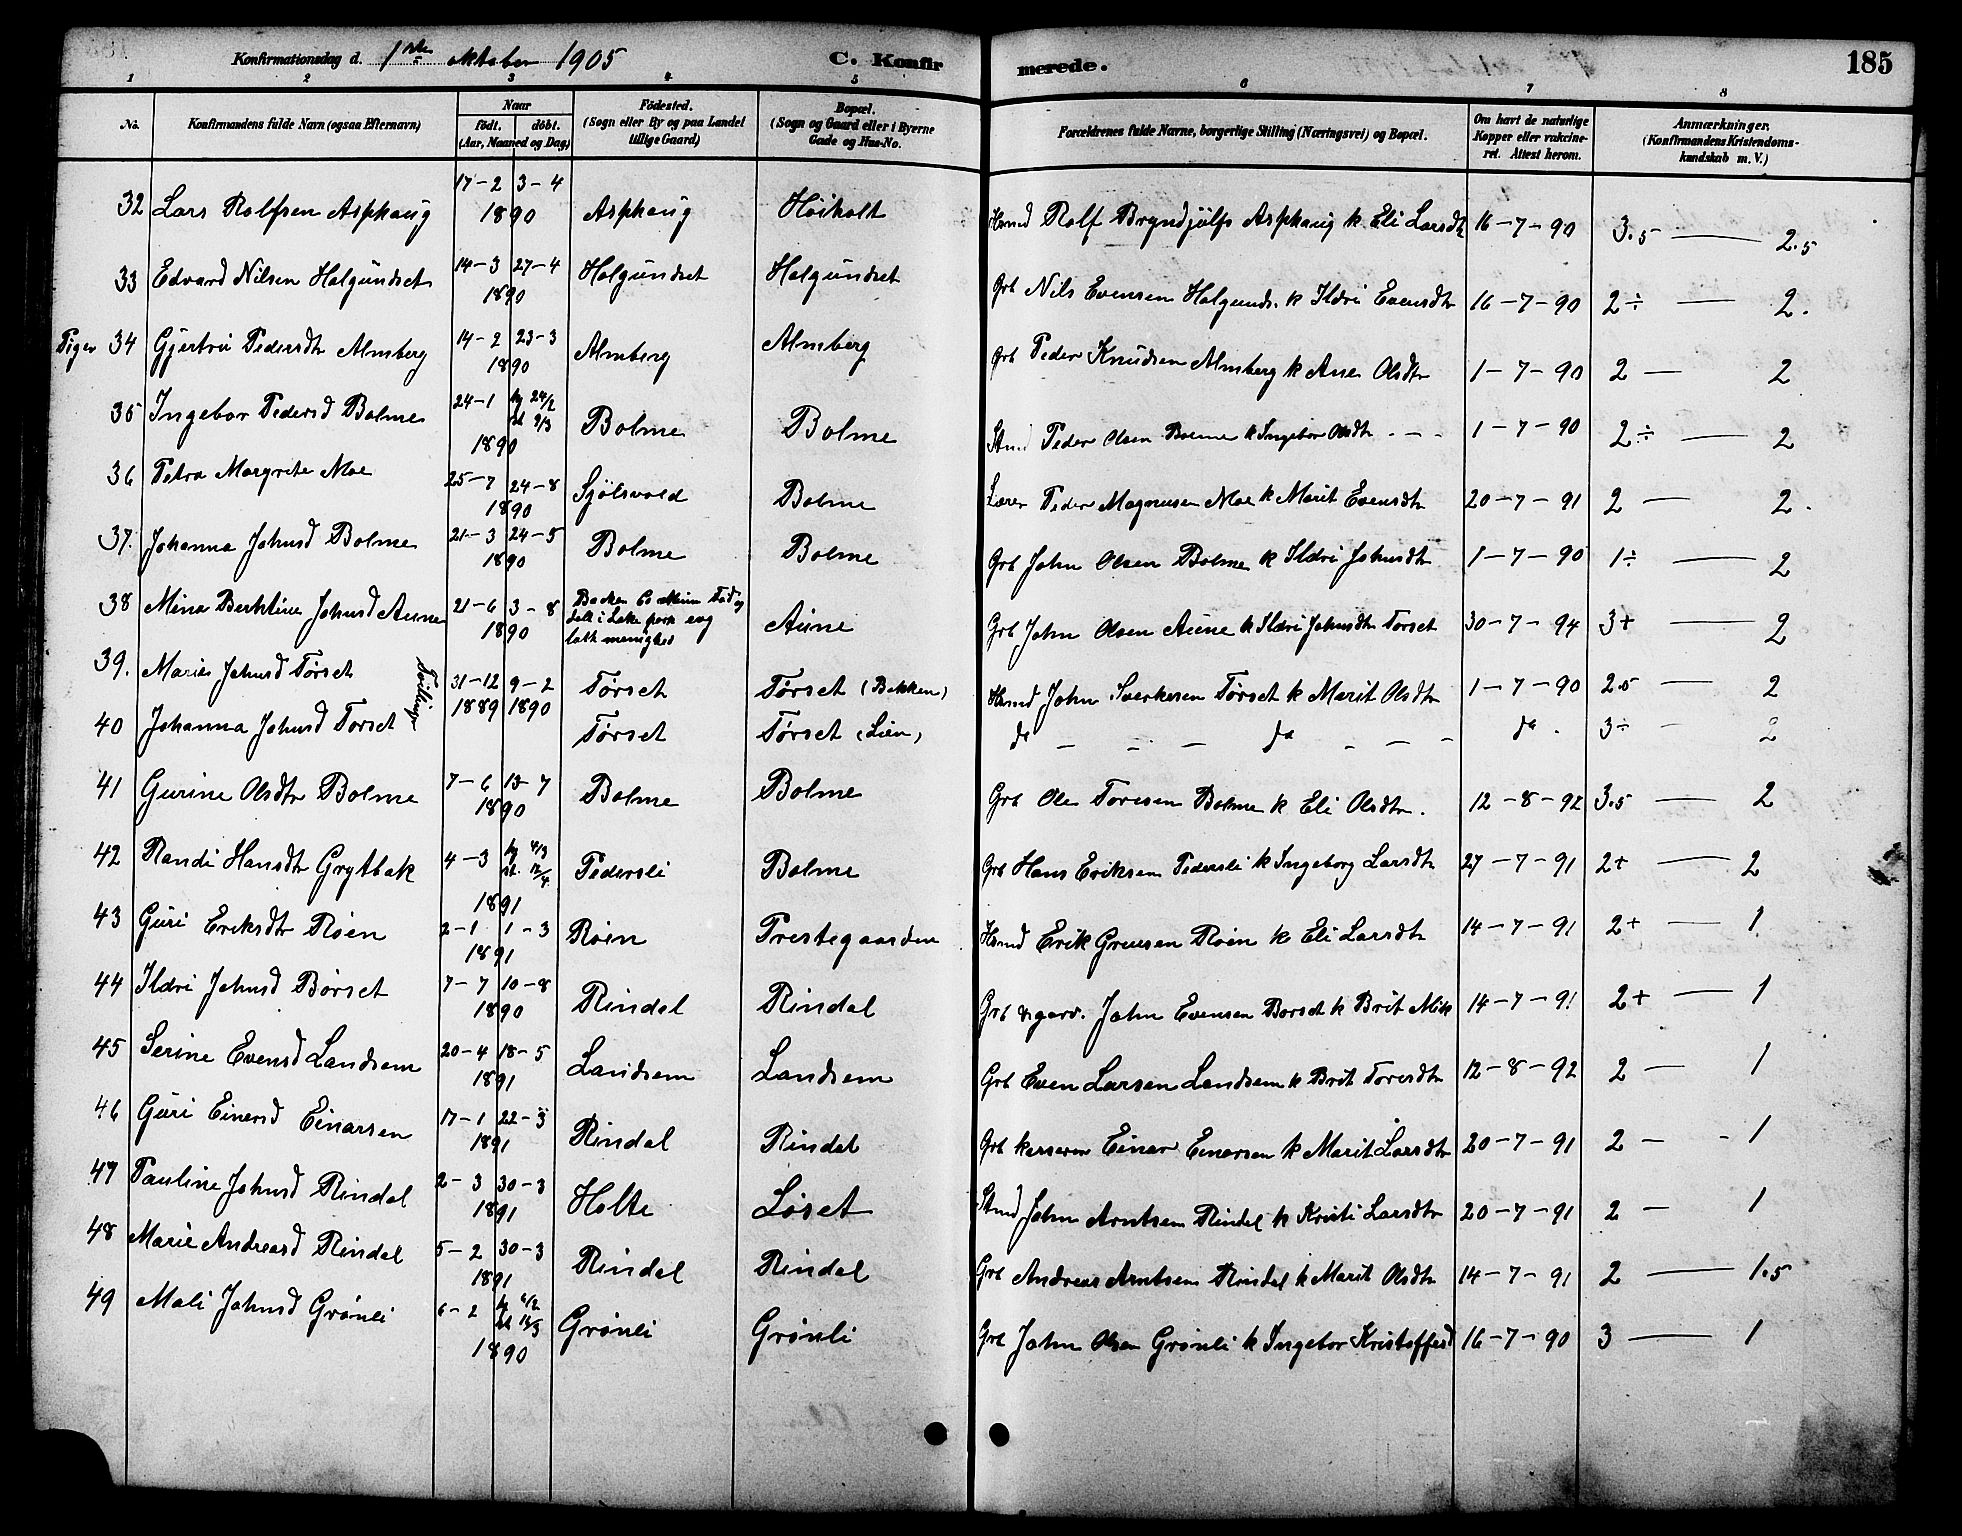 Konfirmationsdag d. 1ste oktober 1905 C. Konfirmerede. 185
1 2 3 4 5 6 7 8
No. Konfirmandens fulde Navn (ogsaa Efternavn) Naar födt. döbt. (Aar, Maaned og Dag) Födested. (Sogn eller By og paa Landet tillige Gaard) Bopæl. (Sogn og Gaard eller i Byerne Gade og Hus-No. Forældrenes fulde Navne, borgerlige Stilling (Næringsvei) og Bopæl. Om havt de naturlige Kopper eller vakcineret. Attest herom. Anmærkninger. (Konfirmandens Kristendomskundskab m. V.)
32 Lars Rolfsen Asphaug 17-2 3-4 1890 Asphaug Høiholt Hsmd Rolf Bryndjulfs Asphaug k Eli Larsdtr 16-7-90 3.5 — 2.5
33 Edvard Nilsen Halgundset 14-3 27-4 1890 Halgundset Halgundset Grb Nils Evensen Halgunds. k Ildri Evensdtr 16-7-90 2÷ — 2.
Piger 34 Gjertru Pedersdtr Almberg 14-2 23-3 1890 Almberg Almberg Grb Peder Knudsen Almberg k Ane Olsdtr 1-7-90 2 — 2
35 Ingebor Pedersd Bolme 24-1 hj 24/2 1890 Bolme Bolme Peder Olsen Bolme k Ingebor Olsdtr - - - 1-7-90 2÷ — 2
36 Petra Margrete Moe 25-7 24-8 1890 Sjölsvold Bolme Lærer Peder Magnusen Moe k Marit Evensdtr 20-7-91 2 — 2.
37. Johanna Johnsd Bolme 21-3 24-5 1890 Bolme Bolme Grb John Olsen Bolme k Ildri Johnsdtr 1-7-90 1÷ — 2
38 Mina Berhtine Johnsd Aune 21-6 3-8 1890 Aune Grb John Olsen Aune k Ildri Johnsdtr Torset 30-7-94 3+ — 2
39. Marie Johnsd Tørset Tvilling 31-12 1889 9-2 1890 Tørset Tørset (Bakken) Hsmd John Sverkesen Tørset k Marit Olsdtr 1-7-90 2.5 — 2
40 Johanna Johnsd Torset Tørset Tørset (Lien) do - - - do - - - do. 3÷ — 2
41 Gurine Olsdtr Bolme 7-6 13-7 1890 Bolme Bolme Grb Ole Toresen Bolme k Eli Olsdtr. 12-8-92 3.5 — 2
42 Randi Hansdtr Grytbak 4-3 hj 4/3 12/4 1891 Pedersli Bolme Grb Hans Eriksen Pedersli k Ingeborg Larsdtr 27-7-91 2+ — 2
43 Guri Eriksdtr Røen 2-1 1-3 1891 Røen Prestegaarden Hsmd Erik Røen k Eli Larsdtr 14-7-91 2+ — 1
44 Ildri Johnsd Børset 7-7 10-8 1890 Rindal Rindal Grb & garv. John Evensen Borset k Brit Mik 14-7-91 2+ — 1
45 Serine Evensd Landsem 20-4 18-5 1891 Landsem Landsem Grb Even Larsen Landsem k Brit Toresdtr 12-8-92 2 — 1
46 Guri Einarsd Einarsen 17-1 22-3 1891 Rindal Rindal Grb Einar Einarsen k Marit Larsdtr 20-7-91 2 - - 1
47 Pauline Johnsd Rindal 2-3 30-3 1891 Holte Løset John Arntsen Rindal k Kristi Larsdtr 20-7-91 2 — 1
48 Marie Andreasd Rindal 5-2 30-3 1891 Rindal Rindal Grb Andreas Arntsen Rindal k Marit Olsdtr 14-7-91 2 — 1.5
49 Mali Johnsd Grønli 6-2 hj 6/2 1890 Grønli Grønli Grb John Olsen Grønli k Ingebor Kristoffersd 16-7-90 3 — 1